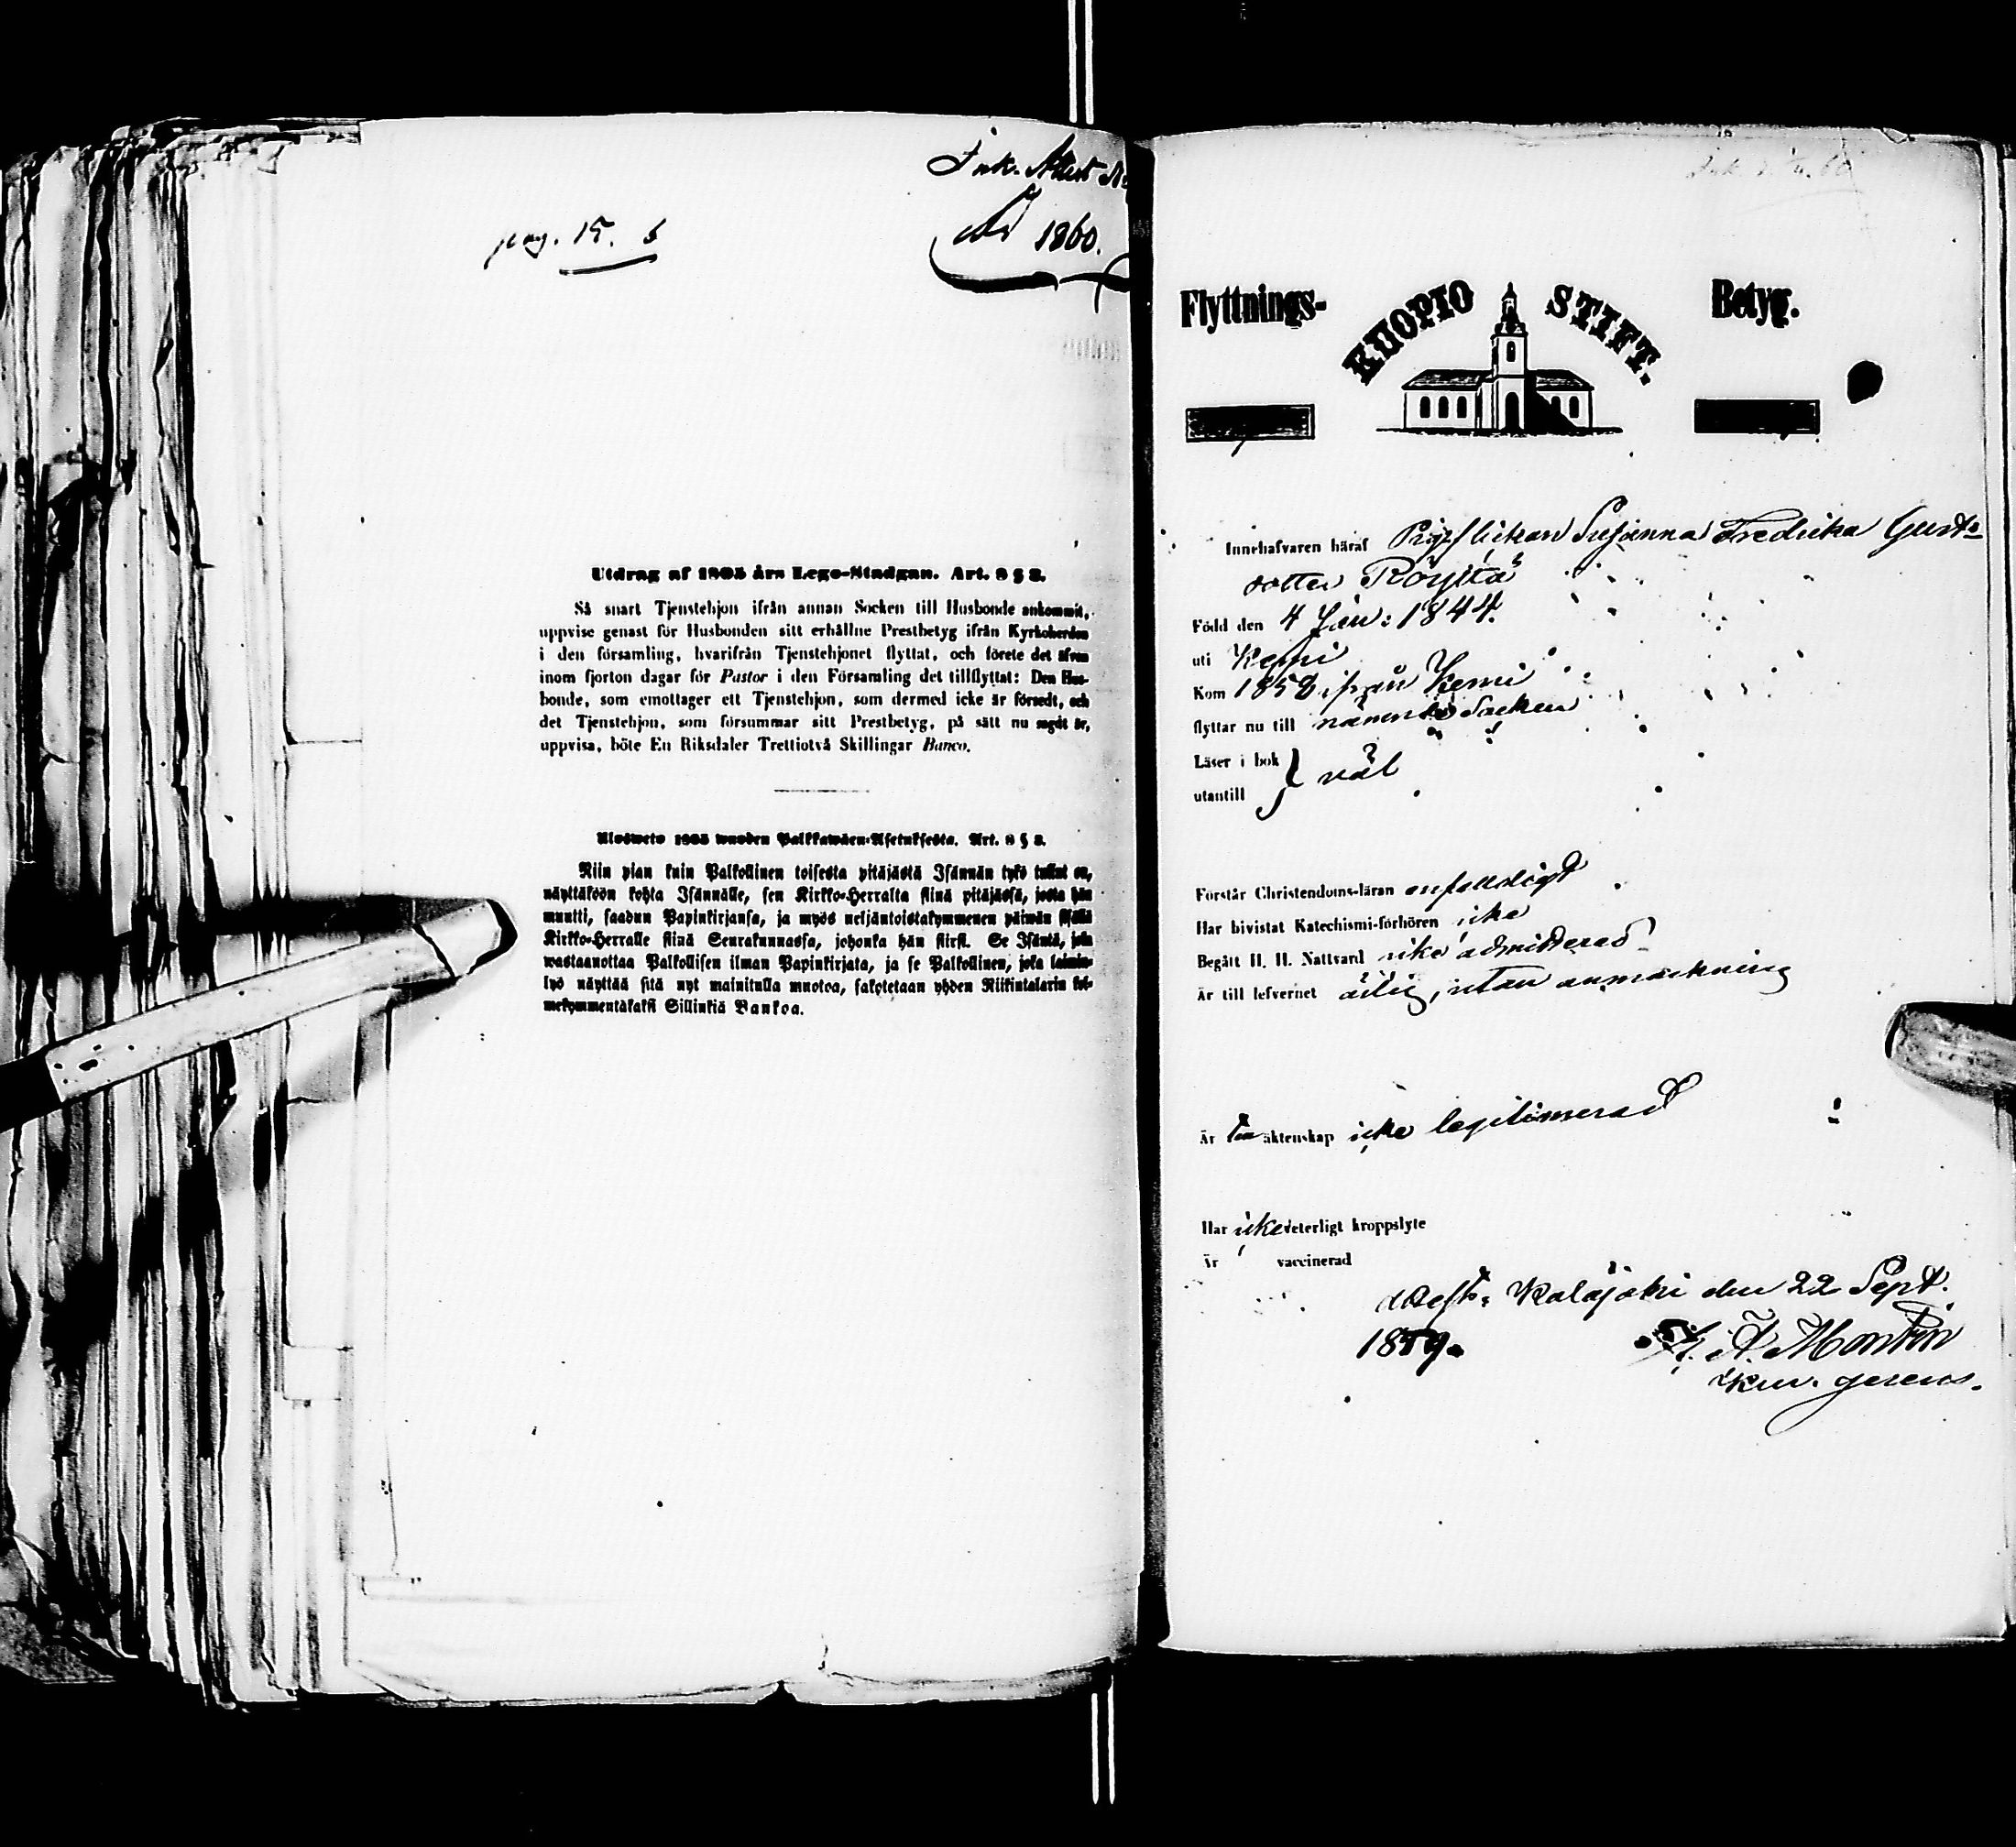 Ink. Attest N
År 1860.
pag. 15.
Utdrag af 1805 års Lego-Stadgan. Art. 8 § 2.
Så snart Tjenstehjon ifrån annan Socken till Husbonde ankommit,
uppvise genast för Husbonden sitt erhållne Prestbetyg ifrån Kyrkoherden
i den församling, hvarifrån Tjenstehjonet flyttat, och förete det äfven
inom fjorton dagar för Pastor i den Församling det tillflyttat: Den Hus-
bonde, som emottager ett Tjenstehjon, som dermed icke är försedt, och
det Tjenstehjon, som försummar sitt Prestbetyg, på sätt nu sagdt är,
uppvisa, böte En Riksdaler Trettiotvå Skillingar Banco.
Ulosweto 1805 wuoden Palkkawäen-Asetuksesta. Art. 8 § 2.
Niin pian kuin Palkollinen toisesta pitäjästä Isännän tykö tullut on,
näyttäköön kohta Isännälle, sen Kirkko-Herralta siinä pitäjässä, josta hän
muutti, saadun Papinkirjansa, ja myös neljäntoistakymmenen päiwän sisällä
Kirkko-Herralle siinä Seurakunnassa, johonka hän siirsi. Se Isäntä, joka
wastaanottaa Palkollisen ilman Papinkirjata, ja se Palkollinen, joka laimin-
lyö näyttää sitä nyt mainitulla muotoa, sakotetaan yhden Riikintalarin kol-
mekymmentäkaksi Sillinkiä Bankoa.
Flyttnings- KUOPIO STIFT. Betyg.
Innehafvaren häraf Pigflickan Susanna Fredrika Gust-
dotter Röyttä
Född den 4 Jan: 1844.
uti Kemi
Kom 1858 ifrån Kemi
flyttar nu till nämnde Socken
Läser i bok } väl
utantill
Förstår Christendoms-läran enfaldigt
Har bivistat Katechismi-förhören icke
Begått H. H. Nattvard icke admitterad
Är till lefvernet ärlig, utan anmärkning
Är till äktenskap icke legitimerad
Har icke veterligt kroppslyte
Är vaccinerad
attest: Kalajoki den 22 Sept.
1859. A. Montin
gerens.